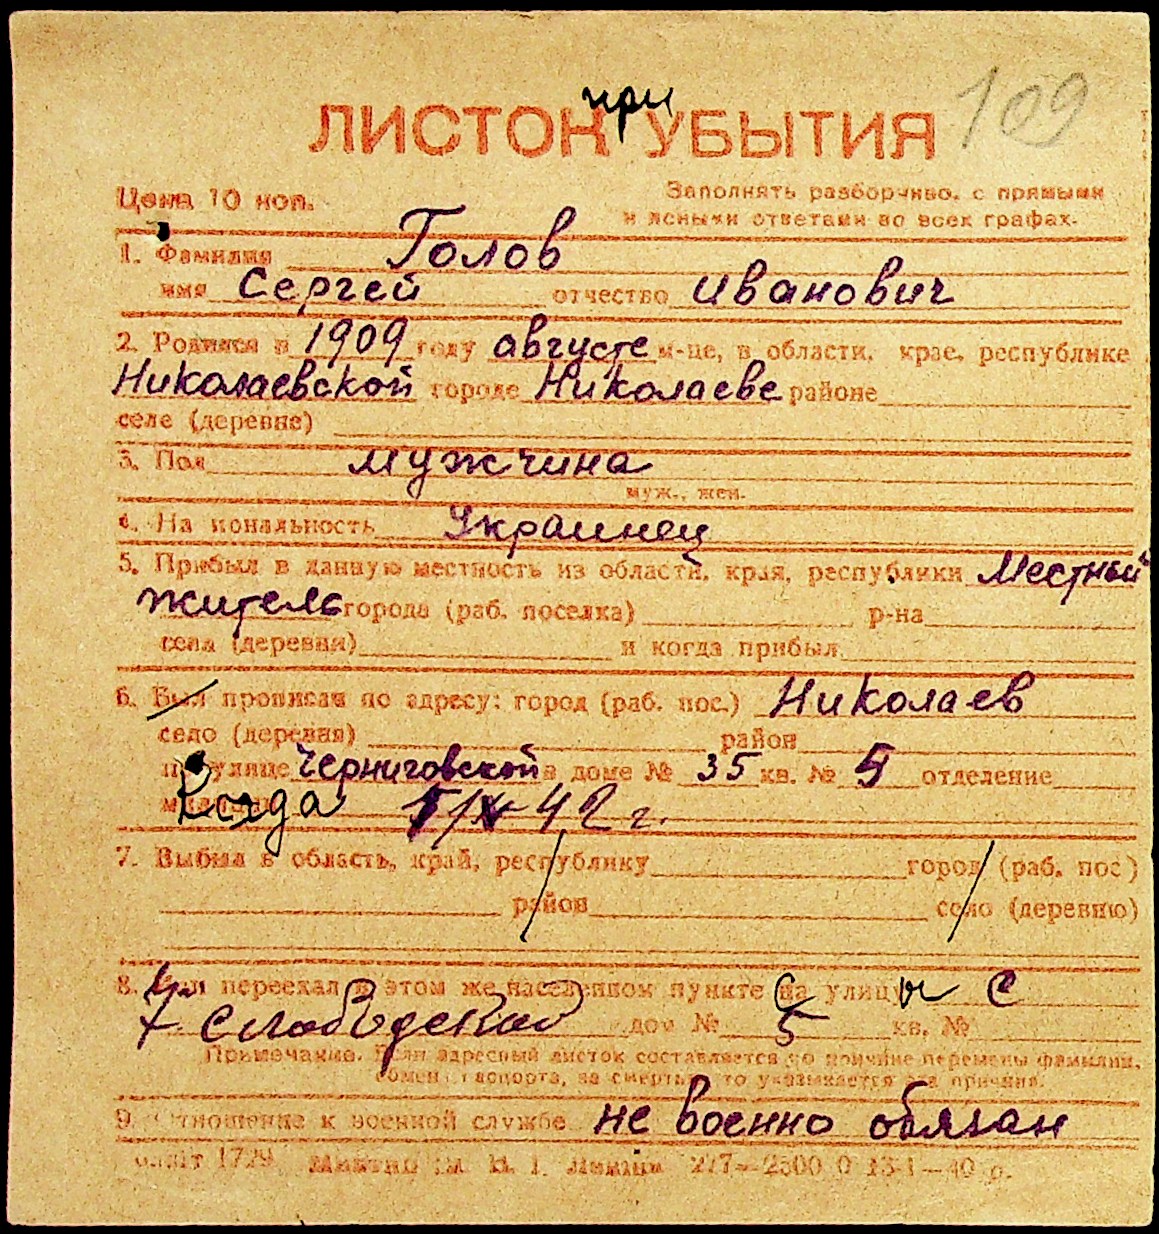 109
при
ЛИСТОК УБЫТИЯ
Цена 10 коп.
Заполнять разборчиво, с прямыми
и ясными ответами во всех графах.
1. Фамилия Голов
имя Сергей отчество Иванович
2. Родился в 1909 году августе м-це, в области, крае, республике
Николаевской городе Николаеве районе
селе (деревне)
3. Пол мужчина
муж., жен.
4. На иональность Украинец
5. Прибыл в данную местность из области, края, республики Местный
житель города (раб. поселка) р-на
села (деревни) и когда прибыл
6. Был прописан по адресу: город (раб. пос.) Николаев
село (деревня) район
улице Черниговской в доме № 35 кв. № 5 отделение
Когда 42 г.
7. Выбыл в область, край, республику город (раб. пос)
район село (деревню)
8. переехал в этом же населенном пункте улицу с
7 Слободской дом № 5 кв. №
Примечание. Если адресный листок составляется по причине перемены фамилии,
обмен паспорта, за смертью, то указывается эта причина.
9. Отношение к военной службе не военно обязан